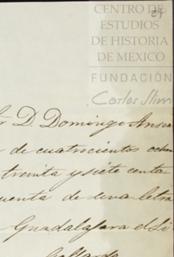 CENTRO DE
ESTUDIOS
DE HISTORIA
DE MEXICO
FUNDACIÓN
Carlos Slim
D Domingo Ansa
de cuatrocientos ochen
treinta y siete centa
cuenta de una letra
Guadalajara el S